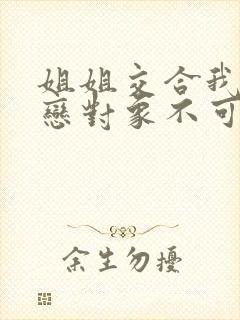 姐姐交合我
戀對象不可
余生勿擾